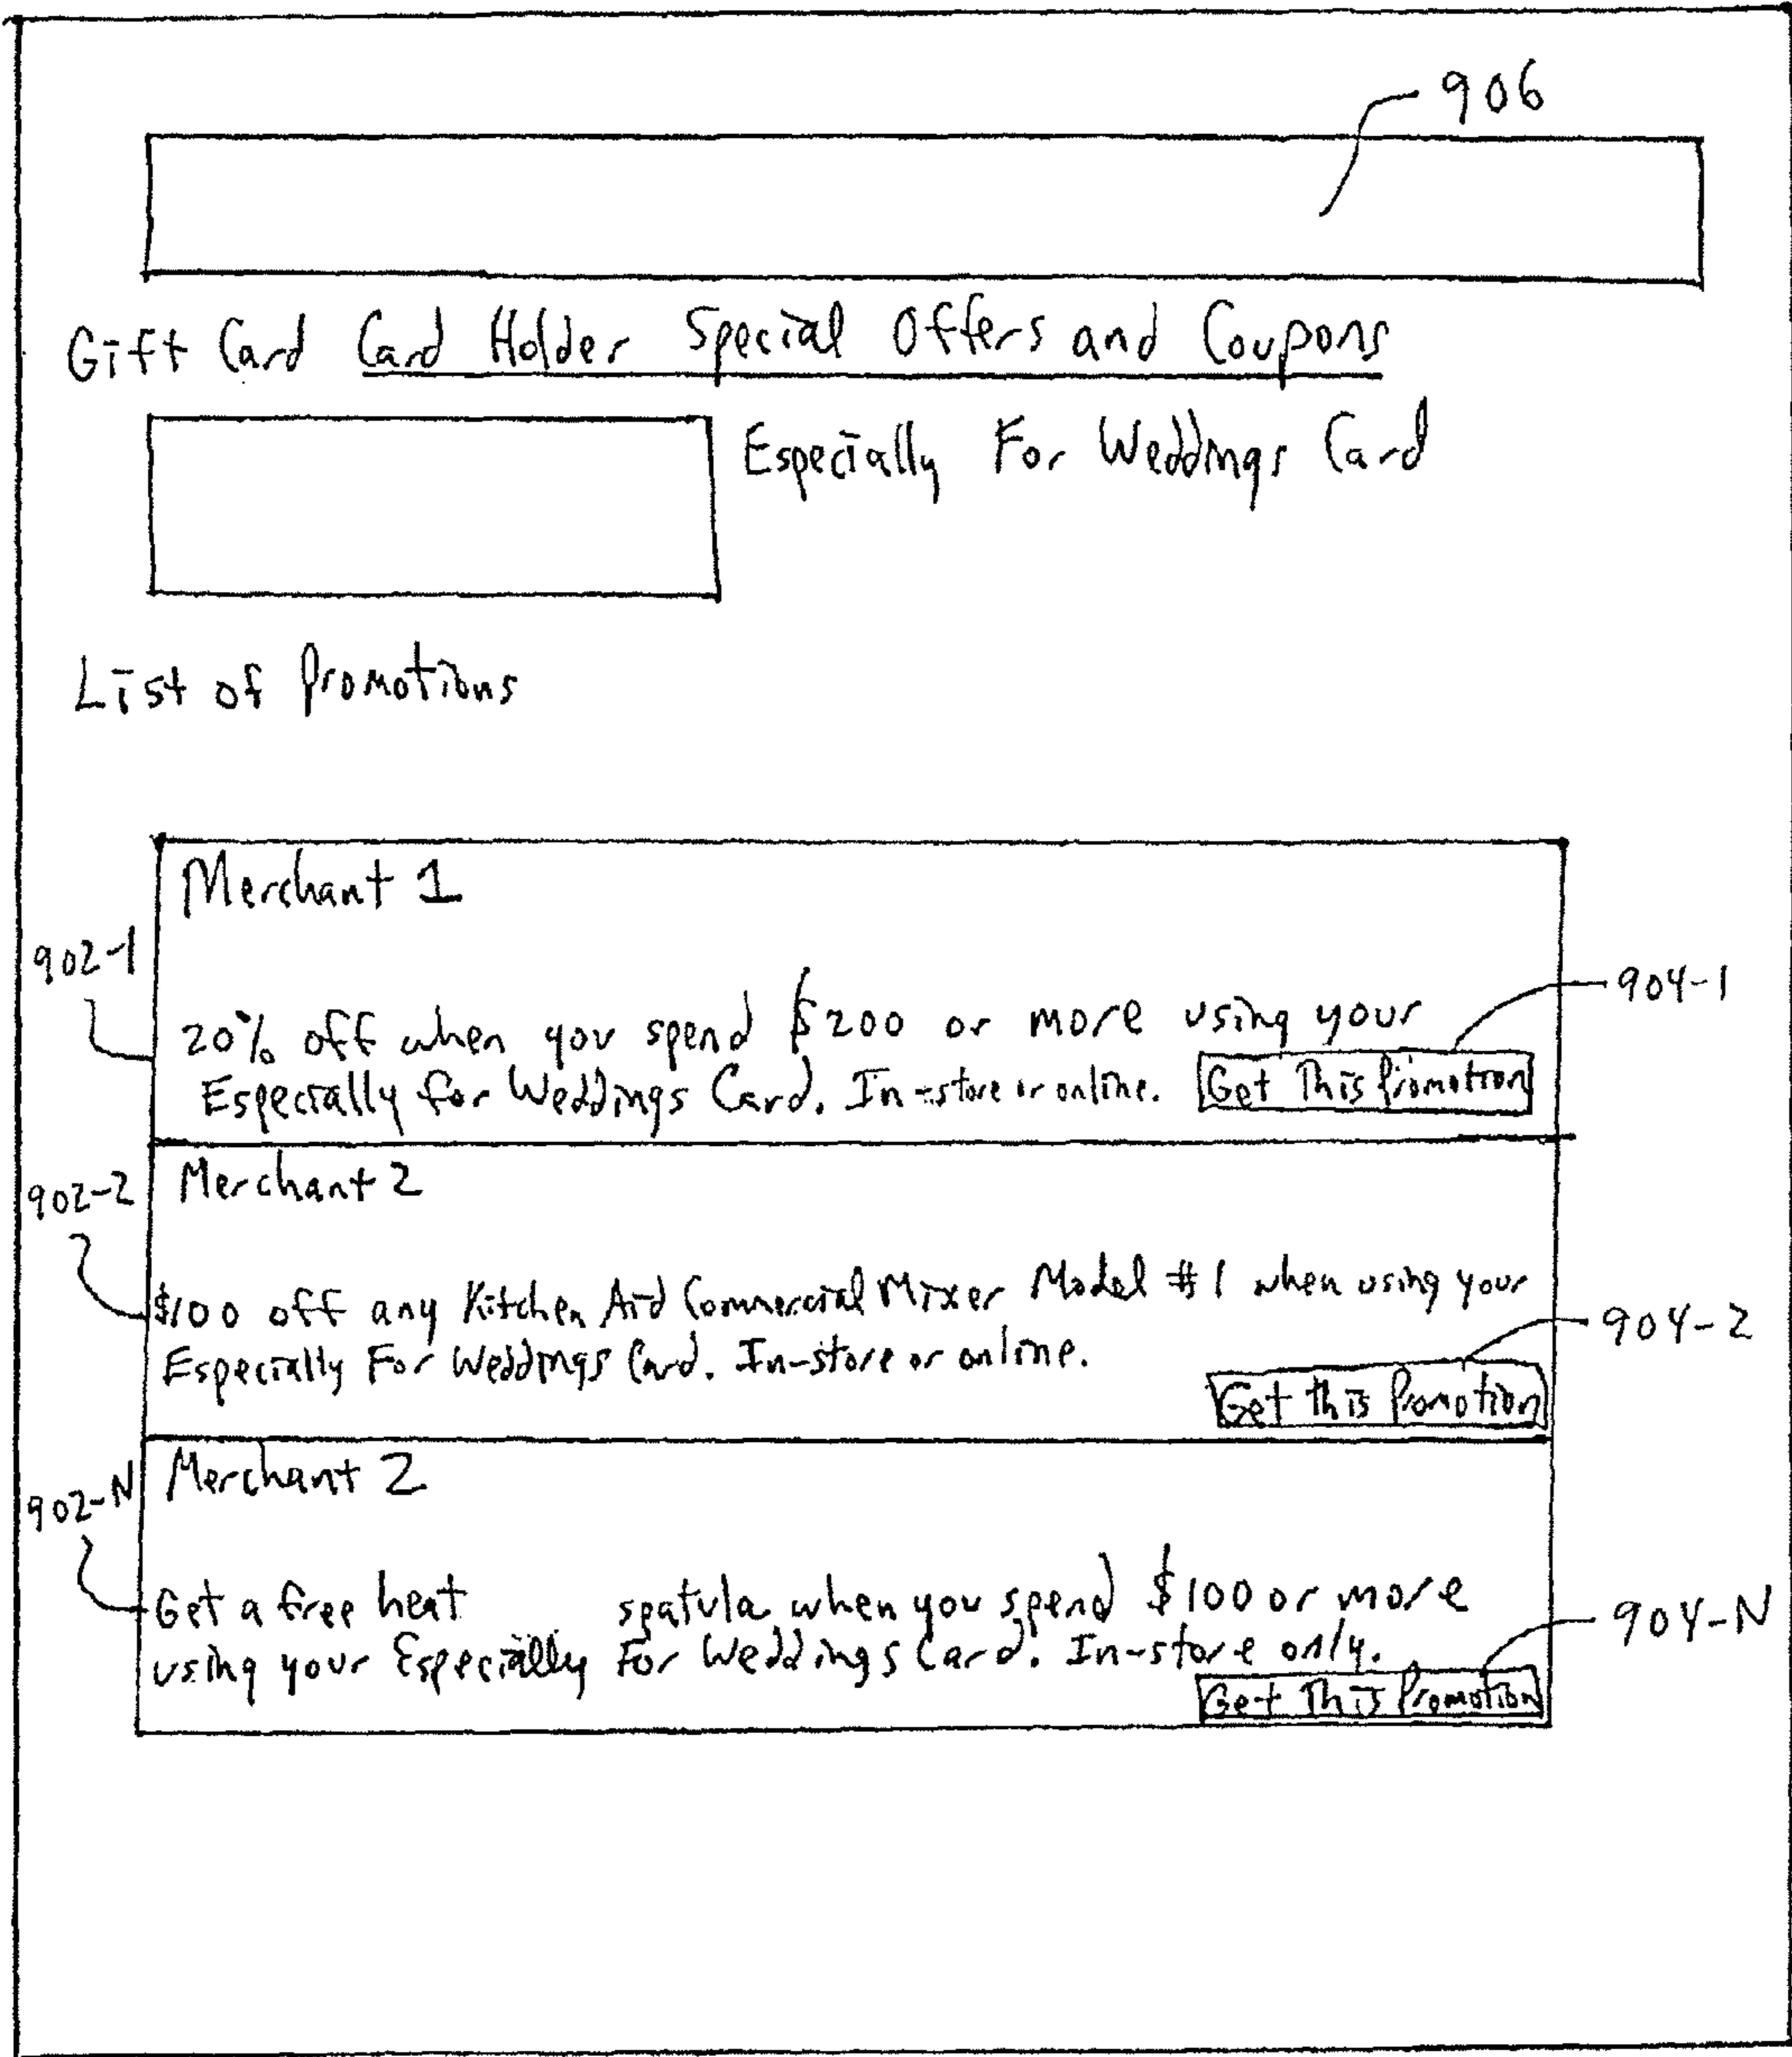 906
Gift Card Card Holder Special Offers and Coupons
Especially For Weddings Card
List of Promotions
Merchant 1
902-1
904-1
20% off when you spend $200 or more using your
Especially for Weddings Card. In-store or online. Get This Promotion
902-2
Merchant 2
$100 off any Kitchen Aid Commercial Mixer Model #1 when using your
904-2
Especially For Weddings Card. In-store or online.
Get this Promotion
902-N
Merchant 2
Get a free heat spatula when you spend $100 or more
904-N
using your Especially For Weddings Card. In-store only.
Get This Promotion